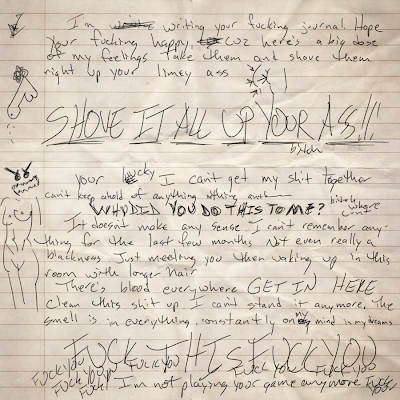 I'm writing your fucking journal. Hope
your fucking happy, cuz here's a big dose
of my feelings. Take them and shove them
right up your limey ass
SHOVE IT ALL UP YOUR ASS!!!
bitch
your lucky I can't get my shit together
can't keep ahold of anything nthing
WHY DID YOU DO THIS TO ME?
bitch whore cunt
It doesnt make any sense I can't remember any-
thing for the last few months Not even really a
blackness Just meeting you then waking up in this
room with longer hair
There's blood everywhere GET IN HERE
Clean this shit up I can't stand it anymore. The
smell is in everything, constantly on my mind in my dreams
FUCK THIS FUCK YOU
FUCK YOU FUCK YOU FUCK YOU FUCK YOU
FUCK YOU FUCK I'm not playing your game anymore FUCK YOU